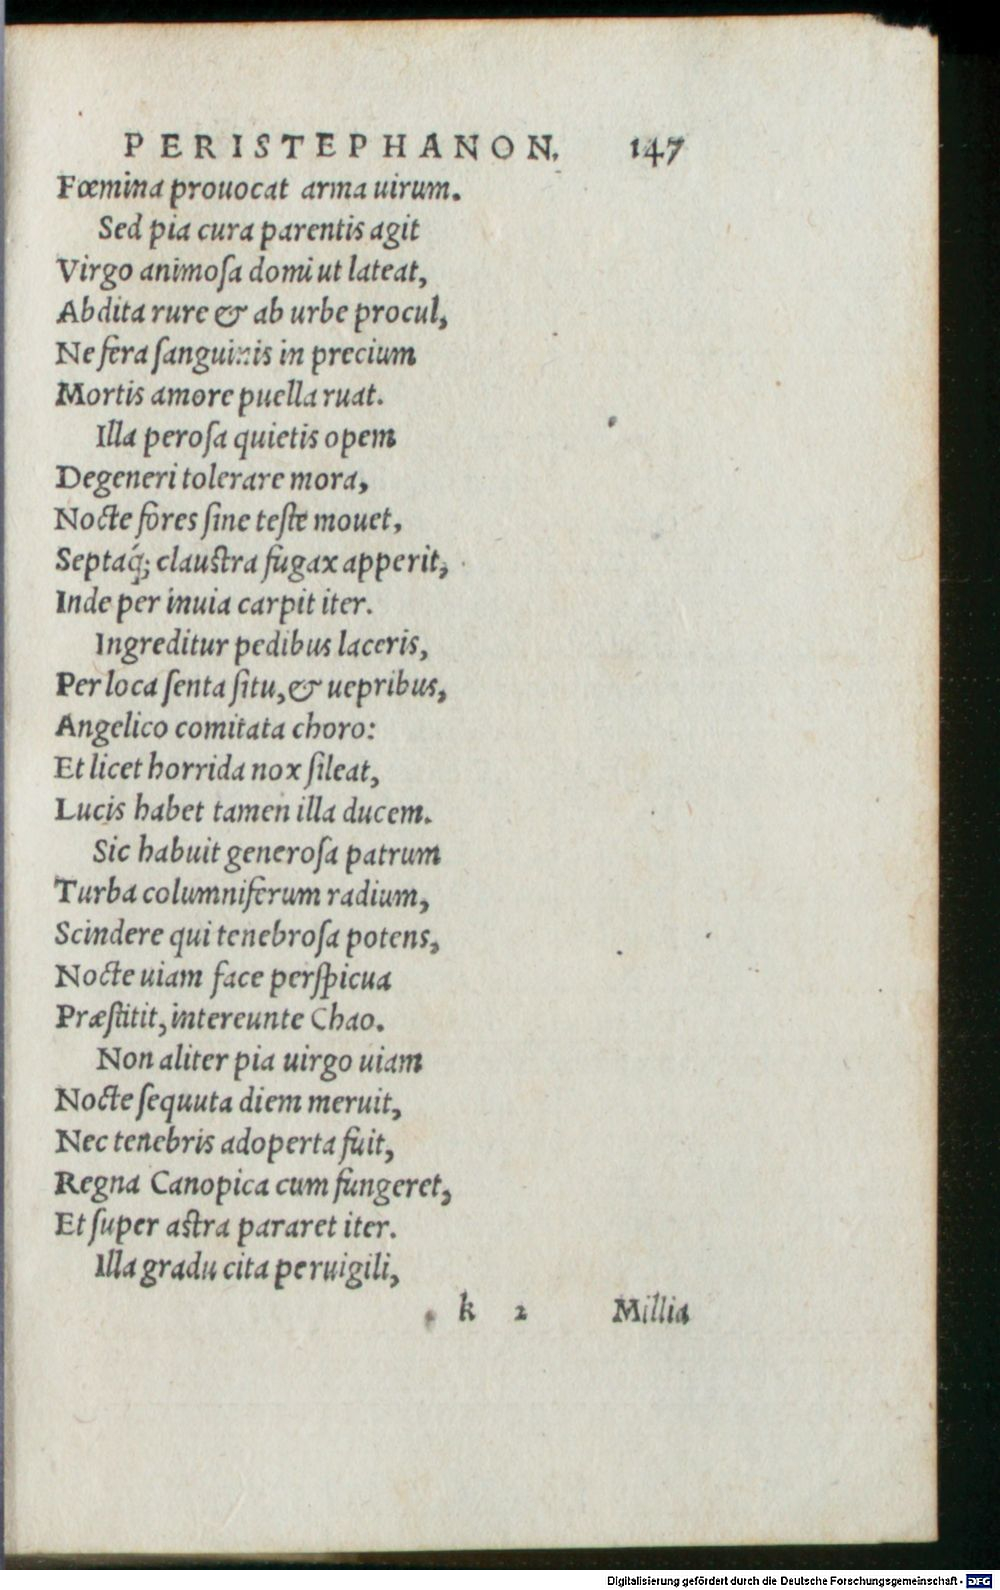 PERISTEPHANON. 147
Fœmina prouocat arma uirum.
Sed pia cura parentis agit
Virgo animoſa domi ut lateat,
Abdita rure & ab urbe procul,
Ne fera ſanguinis in precium
Mortis amore puella ruat.
Illa peroſa quietis opem
Degeneri tolerare mora,
Nocte fores ſine teſte mouet,
Septaq́; clauſtra fugax apperit,
Inde per inuia carpit iter.
Ingreditur pedibus laceris,
Per loca ſenta ſitu, & uepribus,
Angelico comitata choro:
Et licet horrida nox ſileat,
Lucis habet tamen illa ducem.
Sic habuit generoſa patrum
Turba columniferum radium,
Scindere qui tenebroſa potens,
Nocte uiam face perſpicua
Præſtitit, intereunte Chao.
Non aliter pia uirgo uiam
Nocte ſequuta diem meruit,
Nec tenebris adoperta fuit,
Regna Canopica cum fungeret,
Et ſuper aſtra pararet iter.
Illa gradu cita peruigili,
k 2 Millia
Digitalisierung gefördert durch die Deutsche Forschungsgemeinschaft - DFG